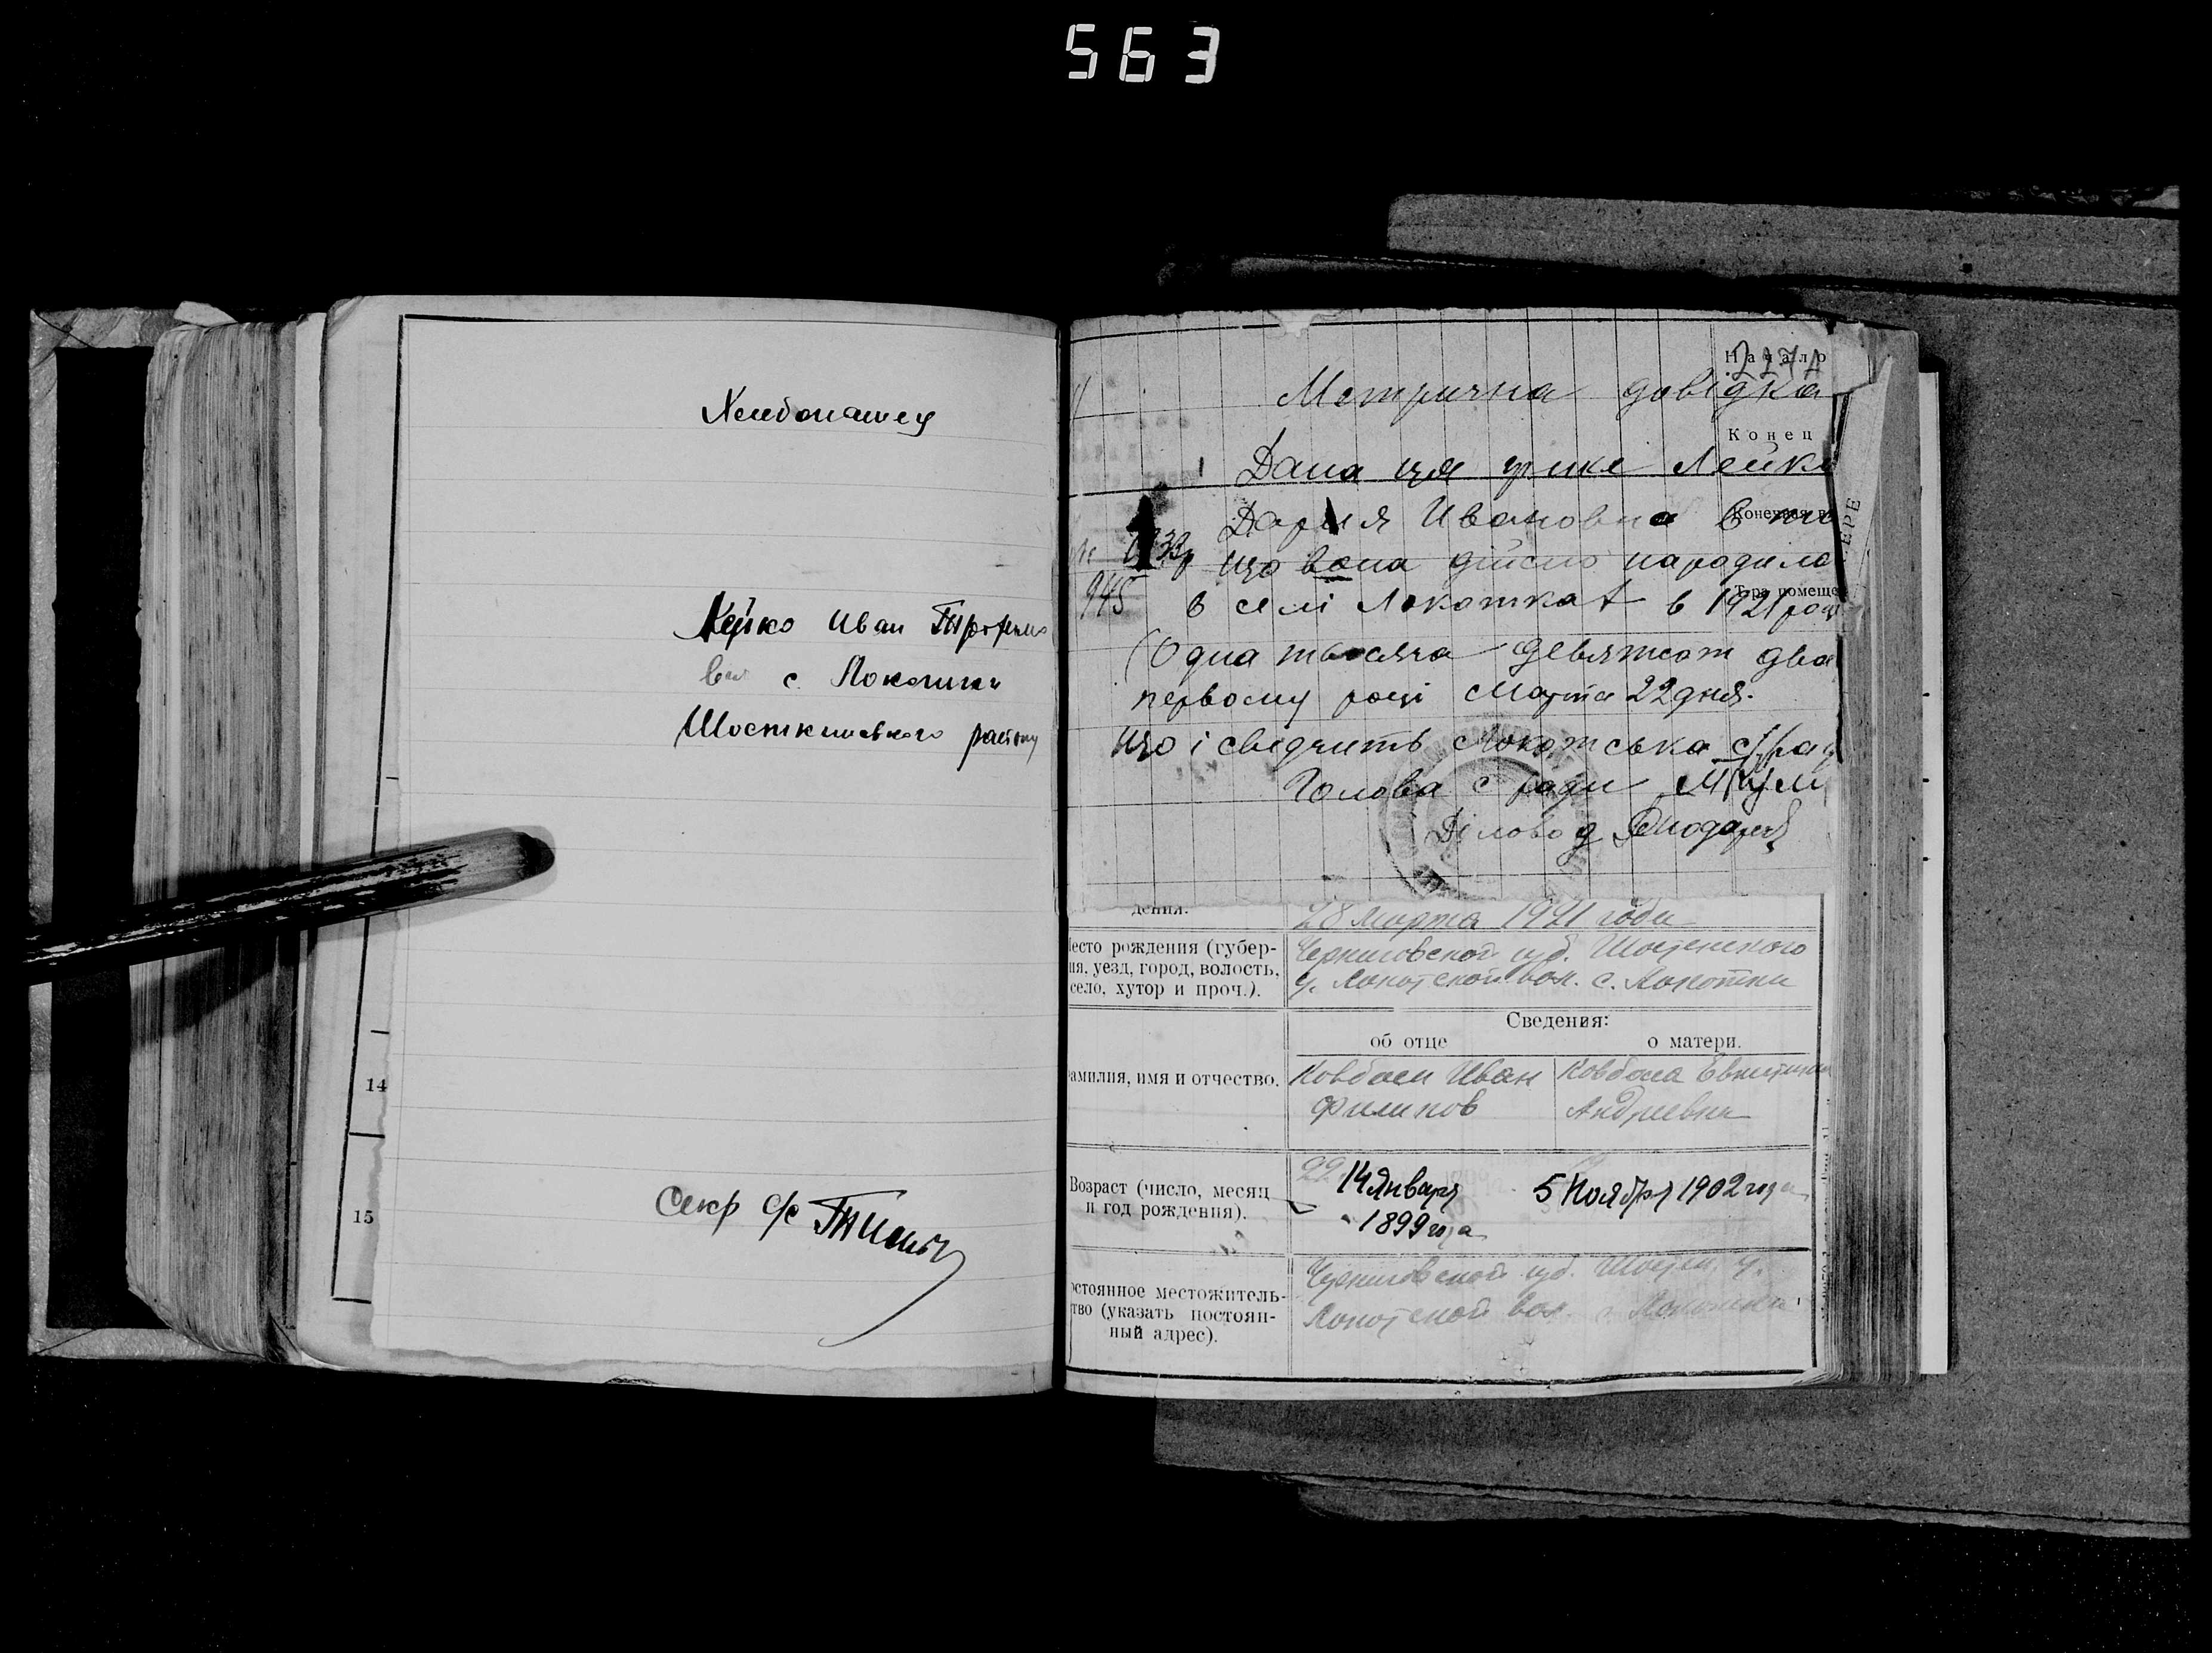 563
Хлебопашец
Лейко Иван Трофимо
вич с. Локотки
Шосткинського району
14
15
Секр с/с
Начало
227А
Метрична довідка
Конец
Дана ця гр-нкі Лейко
Дария Ивановна в том
Конечная
ЕРЕ
1933р що вона дійсно народила
945
в селі Локотках в 1921 році
Тера помеще
(Одна тысяча девятсот два
первому році Марта 22 дня.
що і свідчить Локотська с/рад
Голова с ради
Діловод
дения.
28 марта 1921 года
Место рождения (губер-
ия, уезд, город, волость,
село, хутор и проч.).
Черниговской губ. Шостенского
у. Локотской вол. с. Локотки
Сведения:
об отце
о матери.
амилия, имя и отчество.
Ковбаси Иван
Филипов
Ковбаса
Андреевна
Возраст (число, месяц
и год рождения).
22
14 Января
1899 года
5 Ноября 1902 года
остоянное местожитель-
тво (указать постоян-
ный адрес).
Черниговской губ. Шостен. у.
Локотской вол. с Локотки